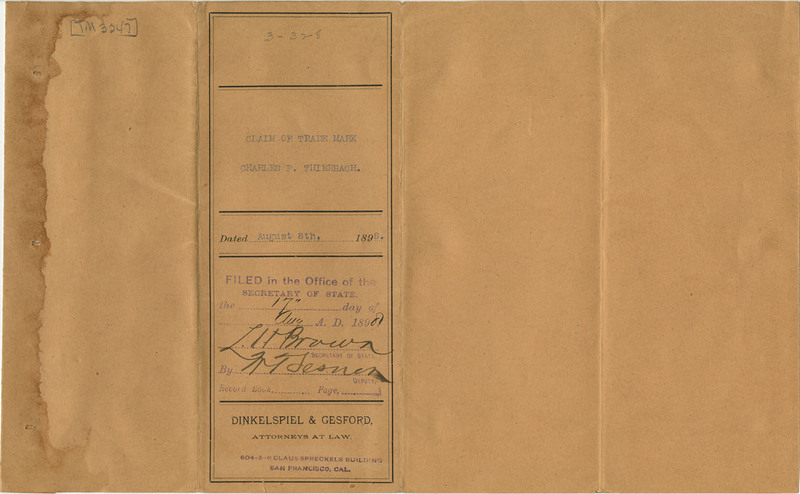 [TM 3247]
3-328
CLAIM OF TRADE MARK
CHARLES F. THIERBACH.
Dated August 8th, 1898.
FILED in the Office of the
SECRETARY OF STATE.
the 17" day of
Aug A. D. 1898
L. H. Brown
SECRETARY OF STATE.
By
DEPUTY.
Record Book, Page,
DINKELSPIEL & GESFORD,
ATTORNEYS AT LAW,
604-5-6 CLAUS SPRECKELS BUILDING
SAN FRANCISCO, CAL.